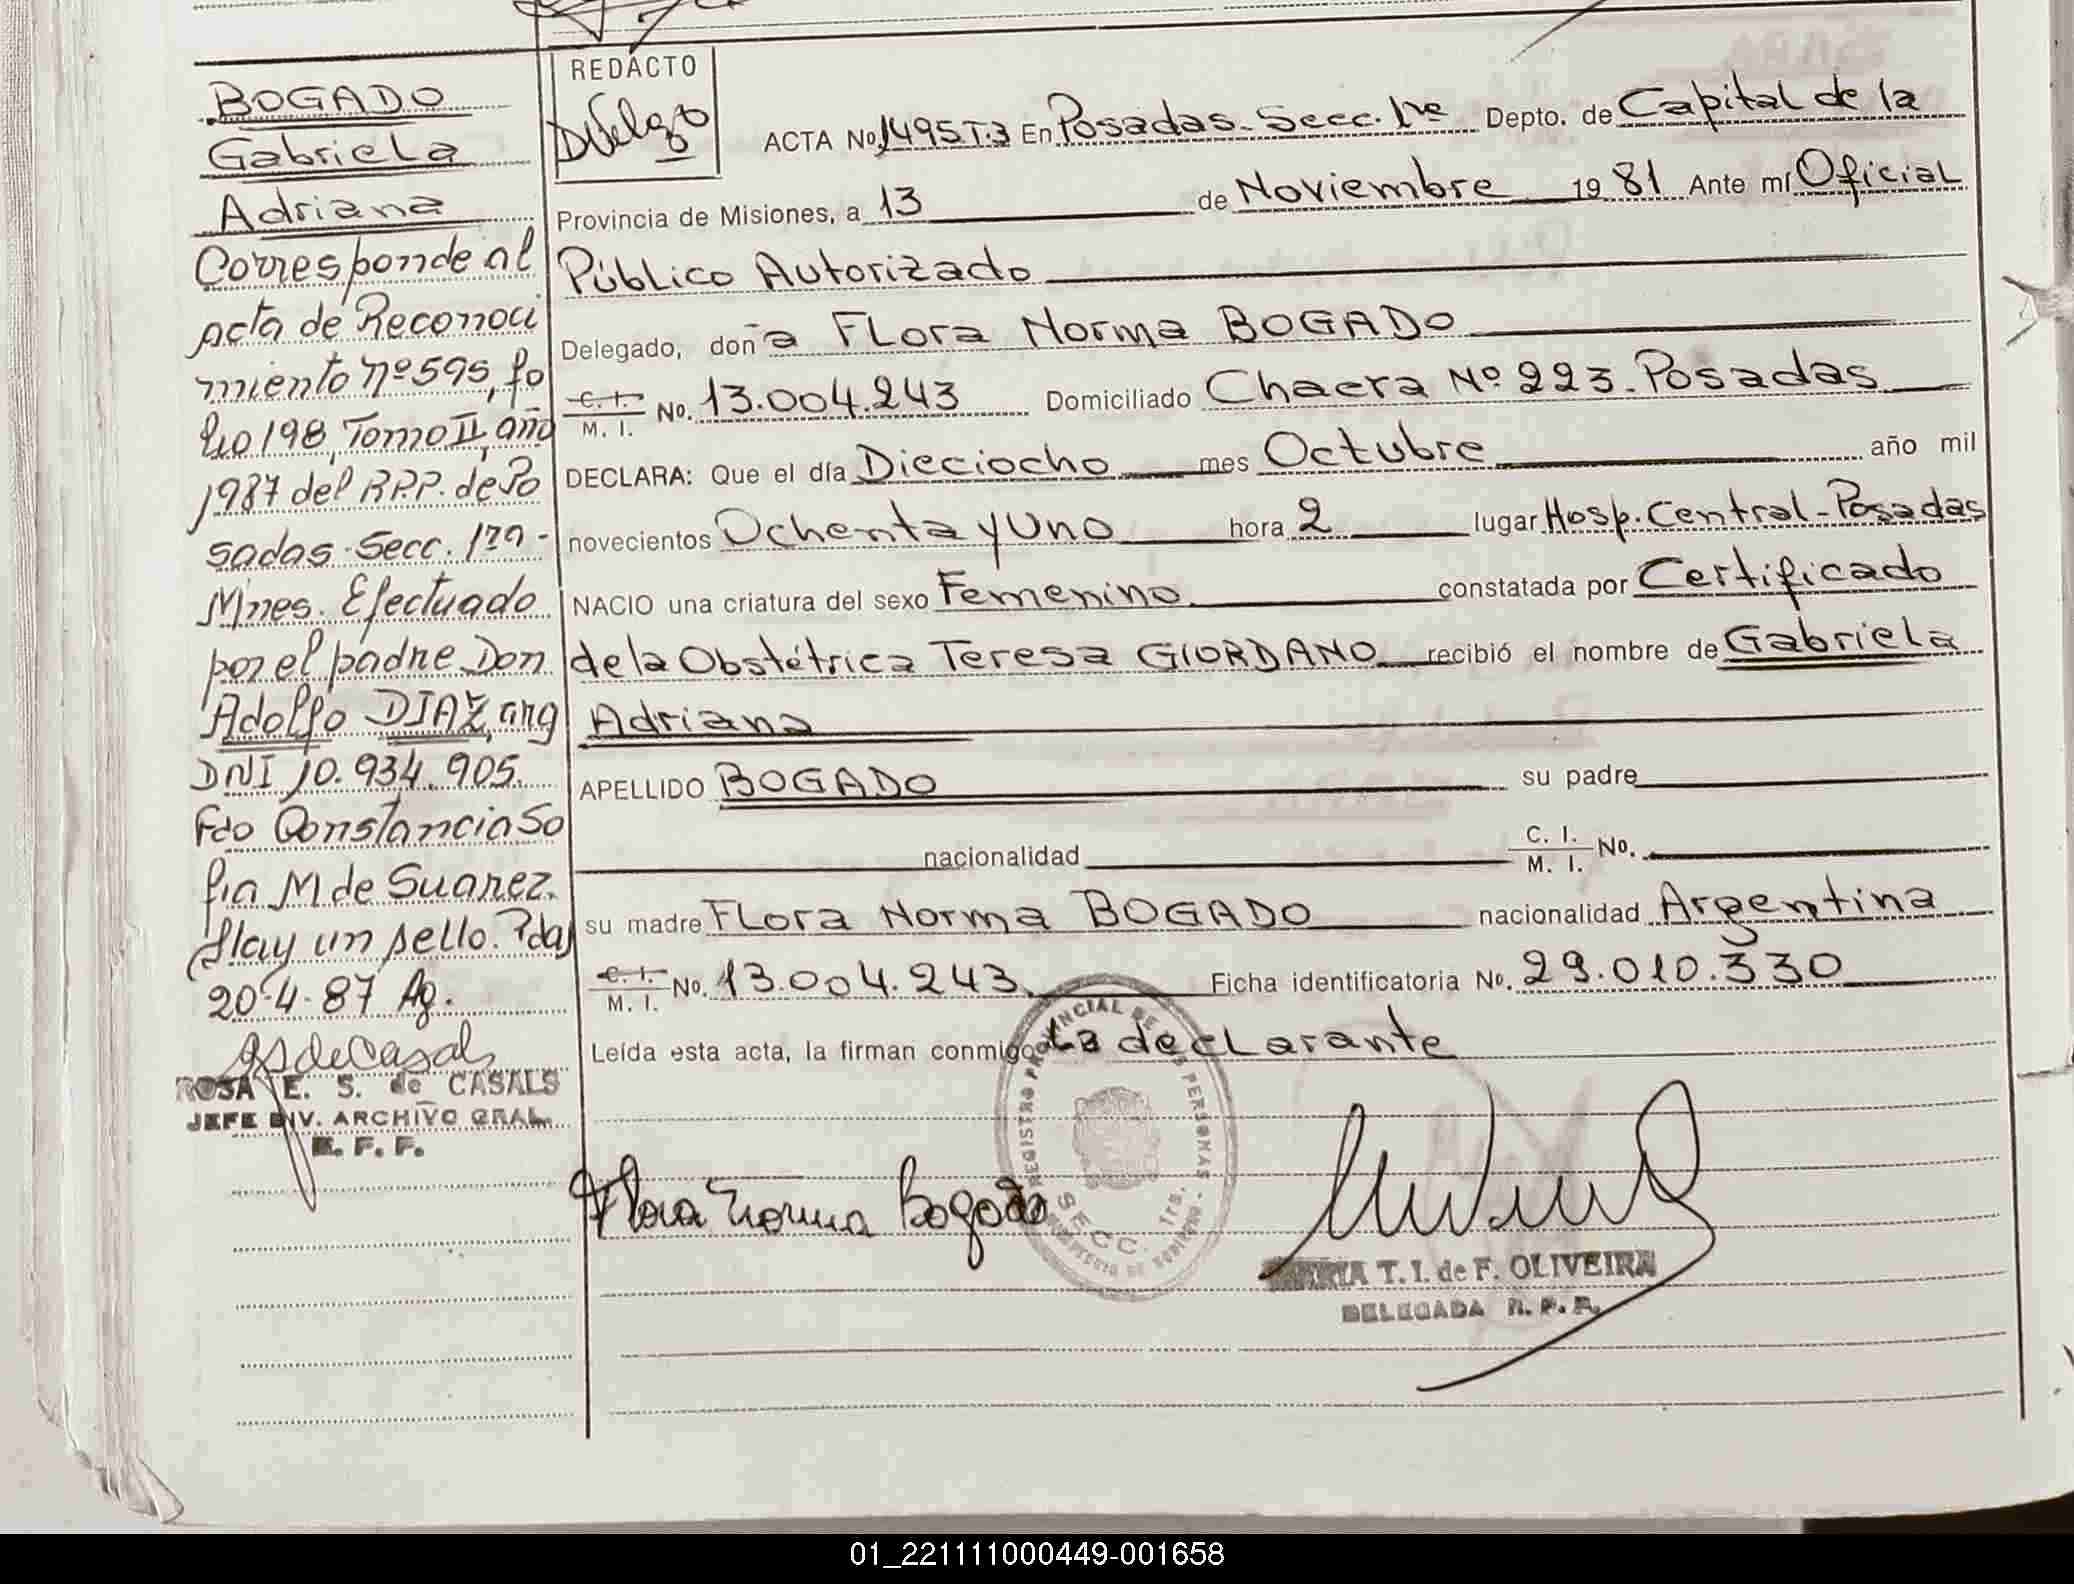 BOGADO
Gabriela
Adriana
Corresponde al
acta de Reconoci
miento nº 595, fo
lio 198, Tomo II, año
1987 del R.P.P. de Po
sadas. Secc. 1ra -
Mnes. Efectuado
por el padre Don
Adolfo DIAZ, arg
DNI 10.934.905.
Fdo Constancia So
fia M de Suarez.
Hay un sello. Pdas
20-4-87 Ag.
ROSA E. S. de CASALS
JEFE DIV. ARCHIVO GRAL.
REDACTO
ACTA No. 1495 T.3 En Posadas. Secc. 1ra Depto. de Capital de la
Provincia de Misiones, a 13 de Noviembre 19 81 Ante mí Oficial
Público Autorizado
Delegado, don a FLora Norma BOGADO
C. I. / M. I. No. 13.004.243 Domiciliado Chacra Nº 223. Posadas
DECLARA: Que el día Dieciocho mes Octubre año mil
novecientos Ochenta y Uno hora 2 lugar Hosp. Central - Posadas
NACIO una criatura del sexo Femenino constatada por Certificado
de la Obstétrica Teresa GIORDANO recibió el nombre de Gabriela
Adriana
APELLIDO BOGADO su padre
nacionalidad C. I. / M. I. No.
su madre FLora Norma BOGADO nacionalidad Argentina
C. I. / M. I. No. 13.004.243. Ficha identificatoria No. 29.010.330
Leída esta acta, la firman conmigo La decLarante
REGISTRO PROVINCIAL DE LAS PERSONAS
SECC. 1ra.
MINISTERIO DE GOBIERNO
Flora Norma Bogado
MARIA T. I. de F. OLIVEIRA
DELEGADA R. P. P.
01_221111000449-001658